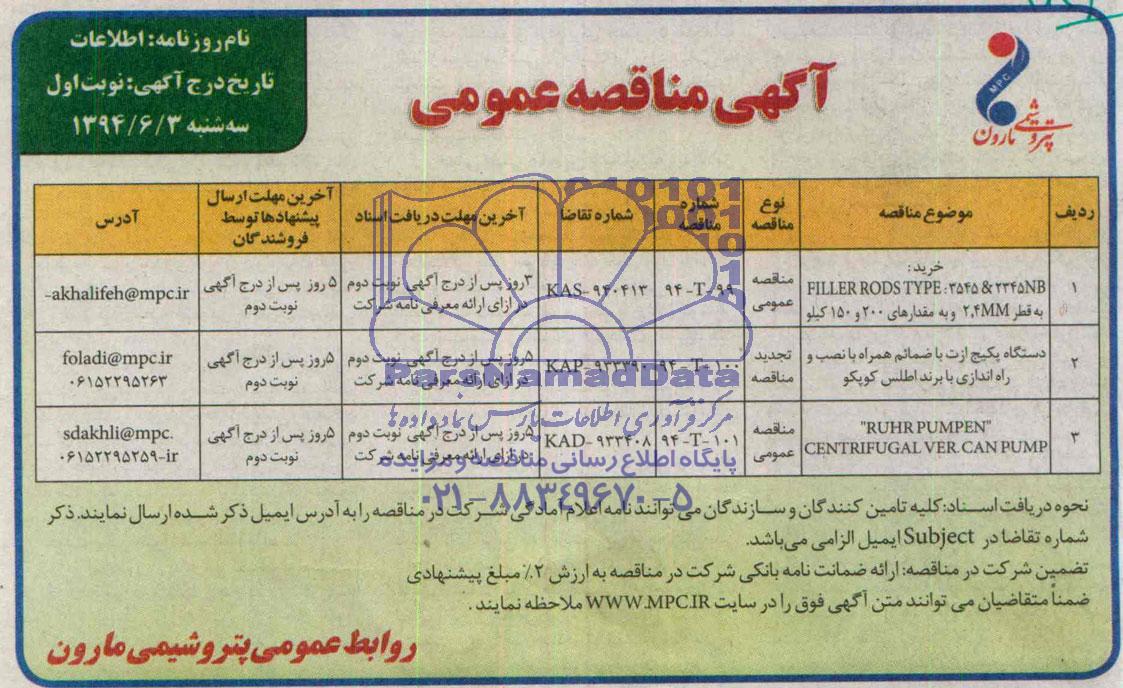 نام روزنامه: اطلاعات
تاریخ درج آگهی: نوبت اول
سه‌شنبه ۱۳۹۴/۶/۳
آگهی مناقصه عمومی
MPC
پتروشیمی
مارون
ردیف
موضوع مناقصه
نوع مناقصه
شماره مناقصه
شماره تقاضا
آخرین مهلت دریافت اسناد
آخرین مهلت ارسال
پیشنهادها توسط
فروشندگان
آدرس
۱
خرید:
FILLER RODS TYPE: ۳۵۴۵ & ۲۳۴۵NB
به قطر ۲,۴MM و به مقدارهای ۲۰۰ و ۱۵۰ کیلو
مناقصه
عمومی
۹۴-T-۹۹
KAS-۹۴۰۴۱۳
۳روز پس از درج آگهی نوبت دوم
در ازای ارائه معرفی نامه شرکت
۵ روز پس از درج آگهی
نوبت دوم
-akhalifeh@mpc.ir
۲
دستگاه پکیج ازت با ضمائم همراه با نصب و
راه اندازی با برند اطلس کوپکو
تجدید
مناقصه
۹۴-T-۱۰۰
KAP-۹۳۳۳۹۰
۵روز پس از درج آگهی نوبت دوم
در ازای ارائه معرفی نامه شرکت
۵روز پس از درج آگهی
نوبت دوم
foladi@mpc.ir
۰۶۱۵۲۲۹۵۲۶۳
۳
"RUHR PUMPEN"
CENTRIFUGAL VER. CAN PUMP
مناقصه
عمومی
۹۴-T-۱۰۱
KAD-۹۳۳۴۰۸
۵روز پس از درج آگهی نوبت دوم
در ازای ارائه معرفی نامه شرکت
۵روز پس از درج آگهی
نوبت دوم
sdakhli@mpc.
۰۶۱۵۲۲۹۵۲۵۹-ir
ParsNamadData
مرکز فرآوری اطلاعات پارس نماد داده ها
پایگاه اطلاع رسانی مناقصه و مزایده
۰۲۱-۸۸۳۴۹۶۷۰-۵
نحوه دریافت اسناد: کلیه تامین کنندگان و سازندگان می توانند نامه اعلام آمادگی شرکت در مناقصه را به آدرس ایمیل ذکر شده ارسال نمایند. ذکر
شماره تقاضا در Subject ایمیل الزامی می‌باشد.
تضمین شرکت در مناقصه: ارائه ضمانت نامه بانکی شرکت در مناقصه به ارزش ۲٪ مبلغ پیشنهادی
ضمناً متقاضیان می توانند متن آگهی فوق را در سایت WWW.MPC.IR ملاحظه نمایند.
روابط عمومی پتروشیمی مارون